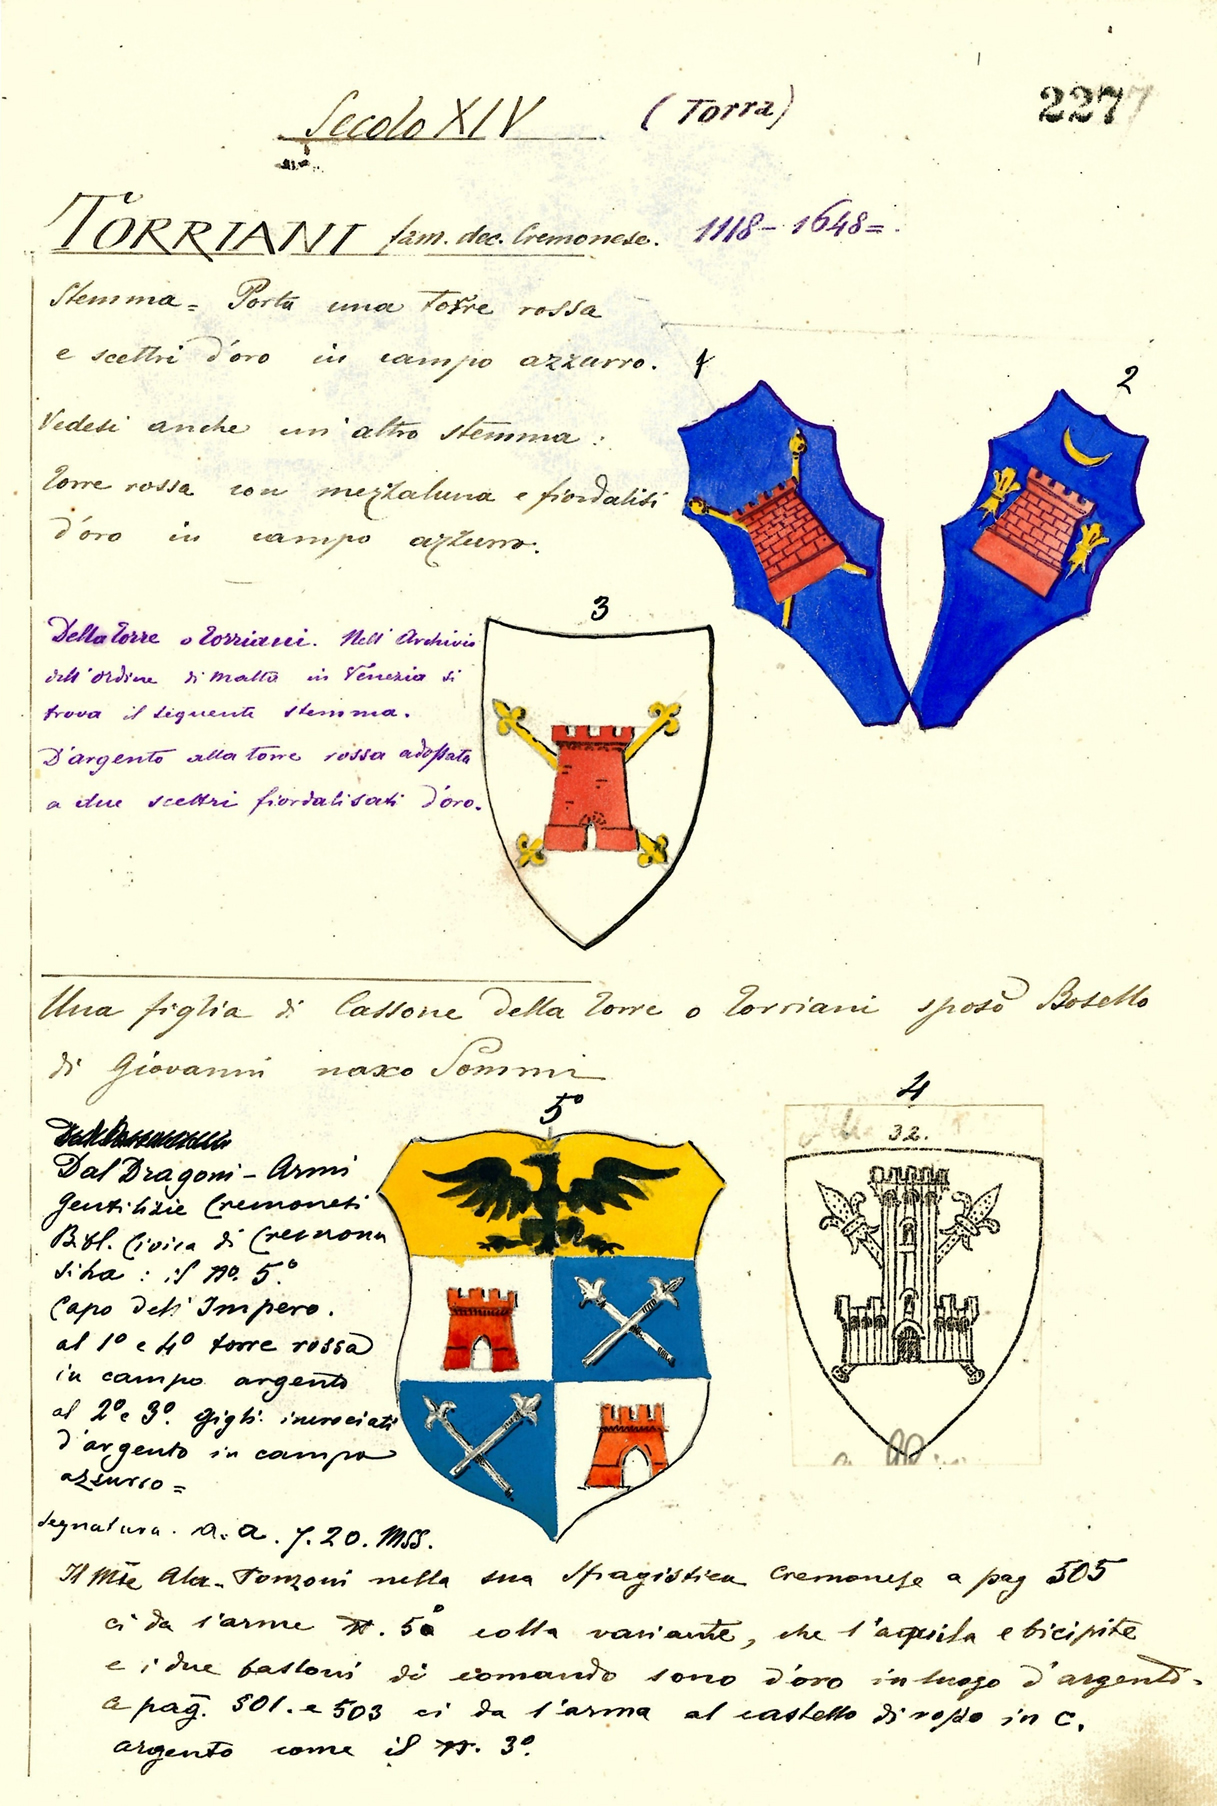 Secolo XIV (Torra) 2277
TORRIANI fam. dec. Cremonese. 1118-1648=.
Stemma= Porta una torre rossa
e scettri d'oro in campo azzurro.
Vedesi anche un'altro stemma:
torre rossa con mezzaluna e fiordalisi
d'oro in campo azzurro.
1
2
Della torre o torriani. Nell'Archivio
dell'ordine di Malta in Venezia si
trova il seguente stemma.
D'argento alla torre rossa adossata
a due scettri fiordalisati d'oro.
3
Una figlia di Cassone della torre o torriani sposò Bosello
di Giovanni naxo Sommi
5º
4
32.
Dal Dragoni - Armi
gentilizie Cremonesi
Bibl. Civica di Cremona
si ha: il Nº. 5.º
Capo dell'Impero.
al 1º e 4º torre rossa
in campo argento
al 2º e 3º. gigli incrociati
d'argento in campo
azzurro=
segnatura. a. a. 7. 20. MSS.
Il Mse Ala-Ponzoni nella sua Sfragistica Cremonese a pag 505
ci da l'arme N. 5º colla variante, che l'aquila e bicipite
e i due bastoni di comando sono d'oro in luogo d'argento.
a pag. 501. e 503 ci da l'arma al castello di rosso in c.
argento come il N. 3º.